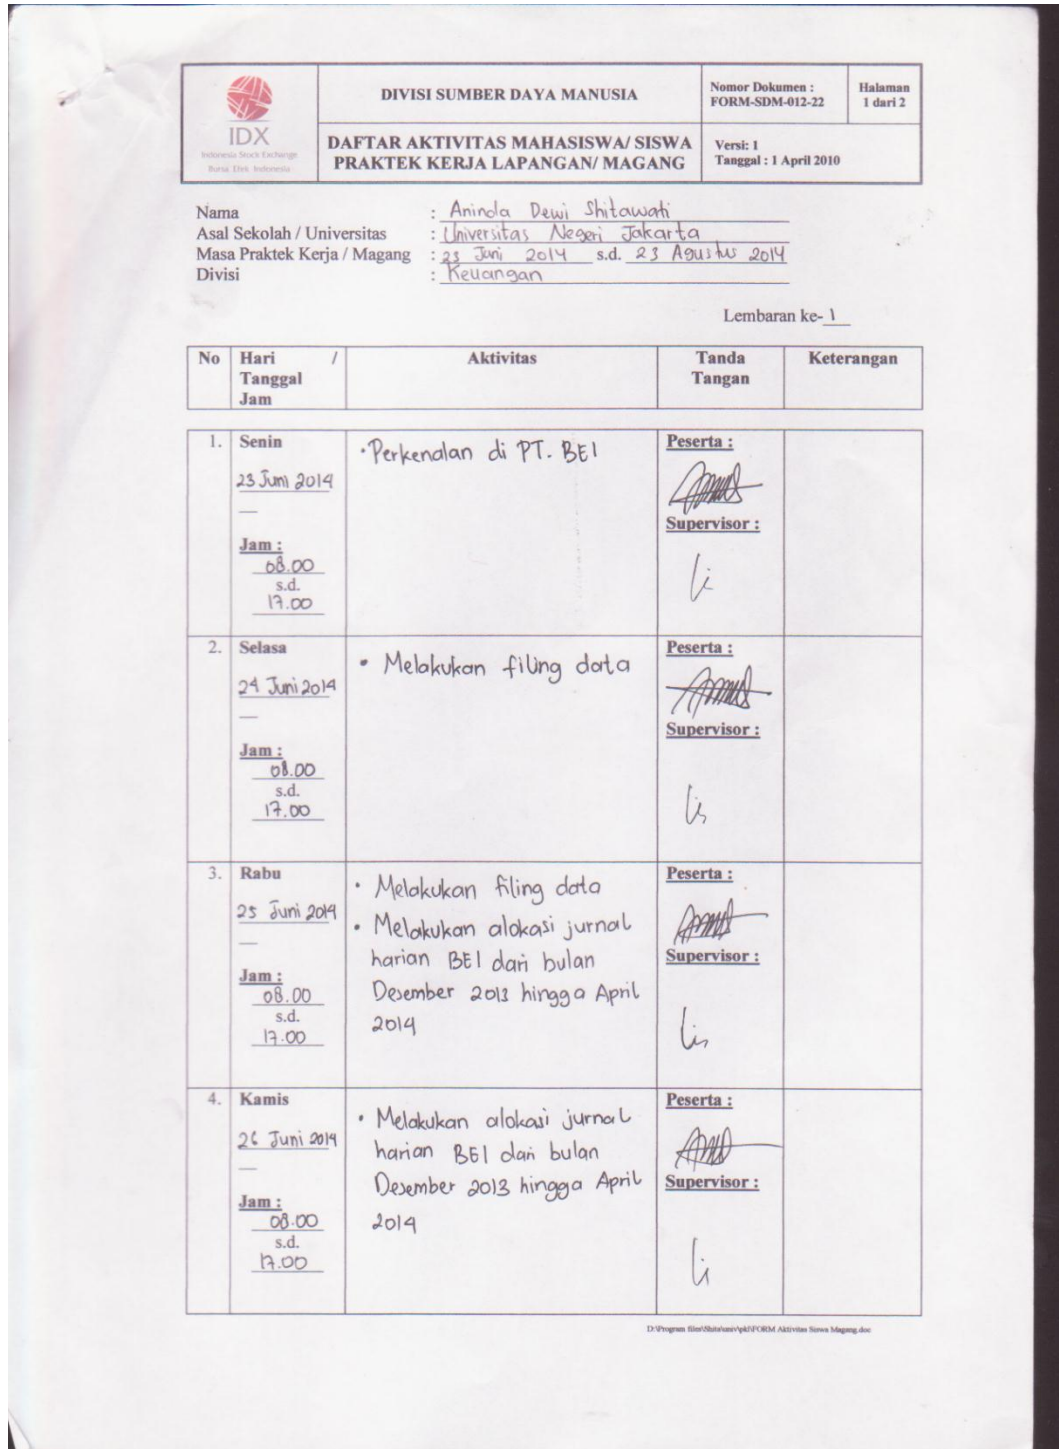 IDX
Indonesia Stock Exchange
Bursa Efek Indonesia
DIVISI SUMBER DAYA MANUSIA
Nomor Dokumen :
FORM-SDM-012-22
Halaman
1 dari 2
DAFTAR AKTIVITAS MAHASISWA/ SISWA
PRAKTEK KERJA LAPANGAN/ MAGANG
Versi: 1
Tanggal : 1 April 2010
Nama : Aninda Dewi Shitawati
Asal Sekolah / Universitas : Universitas Negeri Jakarta
Masa Praktek Kerja / Magang : 23 Juni 2014 s.d. 23 Agustus 2014
Divisi : Keuangan
Lembaran ke- 1
No Hari / Aktivitas Tanda Keterangan
Tanggal Tangan
Jam
1. Senin
23 Juni 2014
Jam :
08.00
s.d.
17.00
• Perkenalan di PT. BEI
Peserta :
Supervisor :
2. Selasa
24 Juni 2014
Jam :
08.00
s.d.
17.00
• Melakukan filing data
Peserta :
Supervisor :
3. Rabu
25 Juni 2014
Jam :
08.00
s.d.
17.00
• Melakukan filing data
• Melakukan alokasi jurnal
harian BEI dari bulan
Desember 2013 hingga April
2014
Peserta :
Supervisor :
4. Kamis
26 Juni 2014
Jam :
08.00
s.d.
17.00
• Melakukan alokasi jurnal
harian BEI dari bulan
Desember 2013 hingga April
2014
Peserta :
Supervisor :
D:\Program files\Shita\univ\pkl\FORM Aktivitas Siswa Magang.doc